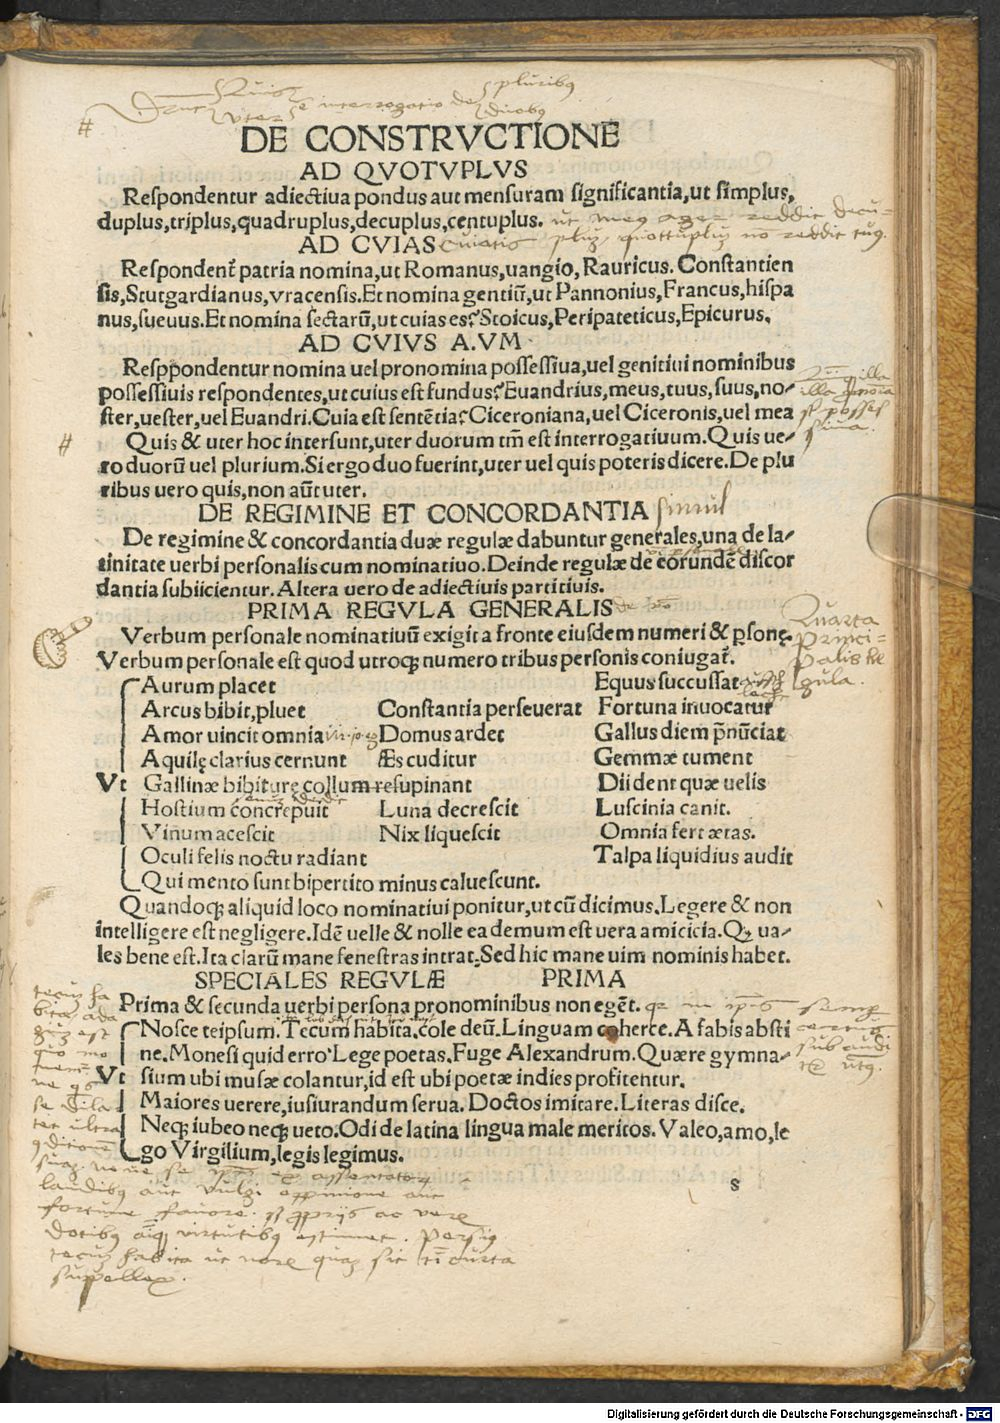 Quis pluribꝰ
Vter interrogatio de duobꝰ
#
DE CONSTRVCTIONE
AD QVOTVPLVS
Respondentur adiectiua pondus aut mensuram significantia,ut simplus,
duplus,triplus,quadruplus,decuplus,centuplus. ut meꝰ ager reddit decu-
AD CVIAS Cuiatis
Respondent᷑ patria nomina,ut Romanus,uangio, Rauricus. Constantien
sis,Stutgardianus,vracensis.Et nomina gentiũ,ut Pannonius,Francus,hispa
nus,sueuus.Et nomina sectarũ,ut cuias es? Stoicus,Peripateticus,Epicurus.
AD CVIVS A.VM
Resppondentur nomina uel pronomina possessiua,uel genitiui nominibus
possessiuis respondentes,ut cuius est fundus? Euandrius,meus,tuus,suus,no-
ster,uester,uel Euandri.Cuia est sentẽtia? Ciceroniana,uel Ciceronis,uel mea
# Quis & uter hoc intersunt,uter duorum tm̃ est interrogatiuum.Quis ue-
ro duorũ uel plurium.Si ergo duo fuerint,uter uel quis poteris dicere.De plu
ribus uero quis,non aũt uter.
DE REGIMINE ET CONCORDANTIA simul
De regimine & concordantia duæ regulæ dabuntur generales,una de la-
tinitate uerbi personalis cum nominatiuo.Deinde regulæ de eorundẽ discor
dantia subiicientur.Altera uero de adiectiuis partitiuis.
PRIMA REGVLA GENERALIS
Quarta
Princi-
palis Re
gula.
Verbum personale nominatiuũ exigit a fronte eiusdem numeri & ꝑsonę.
Verbum personale est quod utroqꝫ numero tribus personis coniugat᷑.
Aurum placet Equus succussat
Arcus bibit,pluet Constantia perseuerat Fortuna inuocatur
Amor uincit omnia Domus ardet Gallus diem p̃nũciat
Aquilę clarius cernunt Æs cuditur Gemmæ tument
Vt Gallinæ bibiturę collum resupinant Dii dent quæ uelis
Hostium concrepuit Luna decrescit Luscinia canit.
Vinum acescit Nix liquescit Omnia fert ætas.
Oculi felis noctu radiant Talpa liquidius audit
Qui mento sunt bipertito minus caluescunt.
Quandoqꝫ aliquid loco nominatiui ponitur,ut cũ dicimus.Legere & non
intelligere est negligere.Idẽ uelle & nolle ea demum est uera amicicia.Qꝫ ua-
les bene est.Ita clarũ mane fenestras intrat.Sed hic mane uim nominis habet.
SPECIALES REGVLÆ PRIMA
Prima & secunda uerbi persona pronominibus non egẽt.
Nosce teipsum.Tecum habita.cole deũ.Linguam coherce.A fabis absti
ne.Monesi quid erro'Lege poetas.Fuge Alexandrum.Quære gymna-
Vt sium ubi musæ colantur,id est ubi poetæ indies profitentur.
Maiores uerere,iusiurandum serua.Doctos imitare.Literas disce.
Neqꝫ iubeo neqꝫ ueto.Odi de latina lingua male meritos.Valeo,amo,le
go Virgilium,legis legimus.
s
laudibꝰ aut vulgi oppinione aut
fortune fauore. ꝓprijs ac vere
dotibꝰ virtutibꝰ estimet. Persiꝰ
tecũ habita ut noris quam sit tibi curta
suppellex.
Digitalisierung gefördert durch die Deutsche Forschungsgemeinschaft - DFG